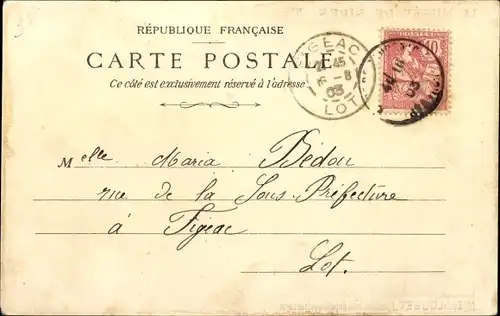 RÉPUBLIQUE FRANÇAISE
CARTE POSTALE
Ce côté est exclusivement réservé à l'adresse
FIGEAC
16 - 8
03
LOT
10
Melle Maria Bédou
rue de la Sous-Préfecture
à Figeac
Lot.